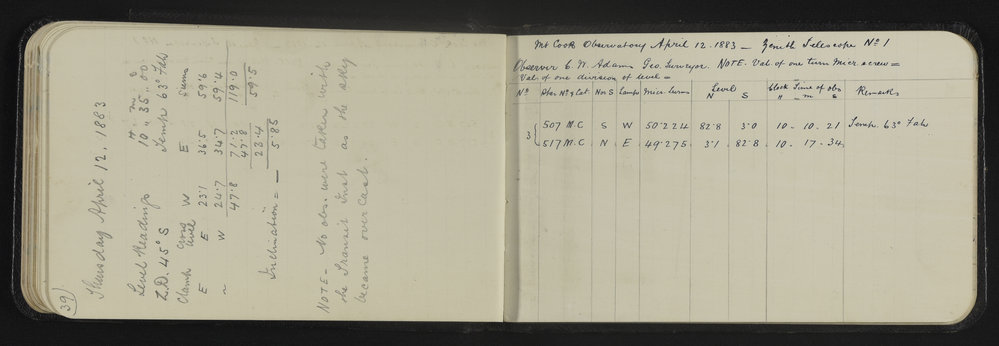 39
Thursday April 12, 1883
Level Readings 10 h. 35 m. 00 s.
Z.D. 45° S Temp 63° Fah.
Clamp Cross level W E Sums
E E 23.1 36.5 59.6
" W 24.7 34.7 59.4
47.8 71.2 119.0
47.8
23.4 59.5
Inclination = - 5.85
NOTE - No obs. were taken with
the Transit Inst as the sky
became over cast.
Mt Cook Observatory April 12. 1883 - Zenith Telescope No 1
Observer C. W. Adams Geo. Surveyor. NOTE. Val of one turn Micr. screw =
Val. of one division of level =
No Star No & Cat. N or S Lamps Micr. turns Level N S Clock Time of obs H m s Remarks
3 { 507 M.C S W 50.224 82.8 3.0 10 - 10. 21 Temp. 63° Fah.
517 M.C N E 49.275 3.1 82.8 10 - 17 - 34